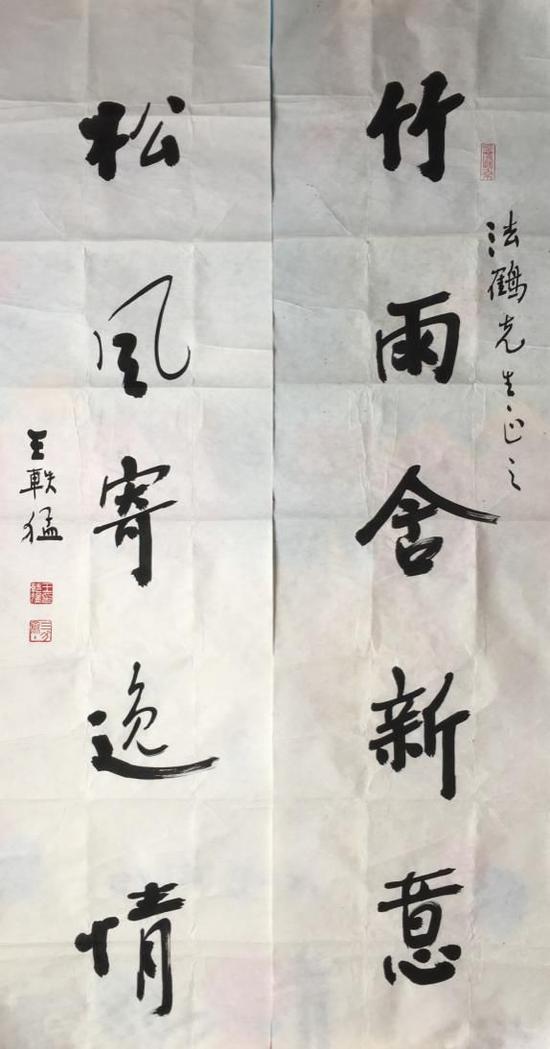 竹雨含新意
法鶴先生正之
松风寄逸情
王軼猛